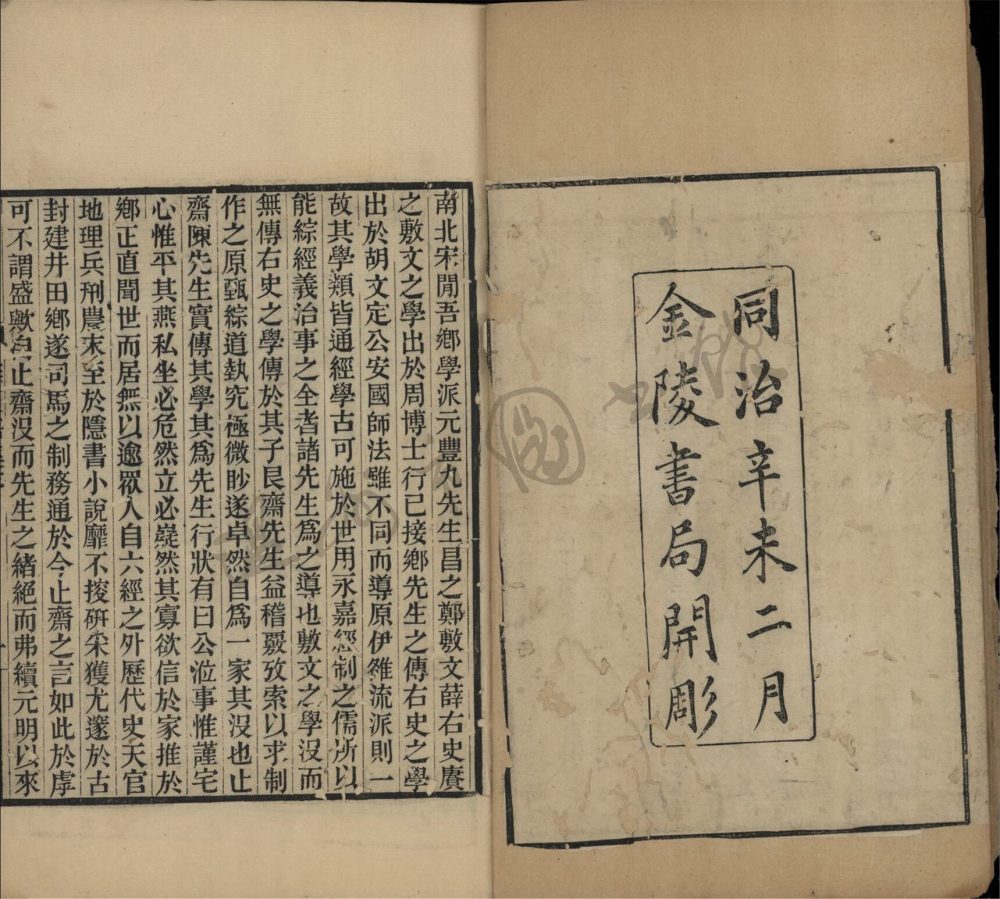 同治辛未二月
金陵書局開彫
南北宋閒吾鄉學派元豐九先生昌之鄭敷文薛右史賡
之敷文之學出於周博士行已接鄉先生之傳右史之學
出於胡文定公安國師法雖不同而導原伊雒流派則一
故其學類皆通經學古可施於世用永嘉經制之儒所以
能綜經義治事之全者諸先生爲之導也敷文之學沒而
無傳右史之學傳於其子艮齋先生益稽覈攷索以求制
作之原甄綜道埶究極微眇遂卓然自爲一家其沒也止
齋陳先生實傳其學其爲先生行狀有曰公涖事惟謹宅
心惟平其燕私坐必危然立必嶷然其寡欲信於家推於
鄉正直聞世而居無以逾眾人自六經之外歷代史天官
地理兵刑農末至於隱書小說靡不搜硏采獲尤邃於古
封建井田鄉遂司馬之制務通於今止齋之言如此於虖
可不謂盛歟 止齋沒而先生之緒絕而弗續元明以來